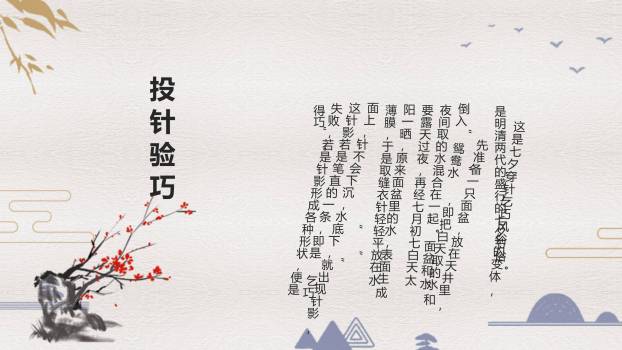 投针验巧
这是七夕穿针乞巧风俗的变体，
是明清两代的盛行的七夕节俗。
先准备一只面盆，放在天井里，
倒入“鸳鸯水”，即把白天取的水和
夜间取的水混合在一起。面盆和水
要露天过夜，再经七月初七白天太
阳一晒，原来面盆里的水，表面生成
薄膜，于是取缝衣针轻轻平放在水
面上，针不会下沉，水底下，就出现针影，
这针影若是笔直的一条，即是“乞巧
失败”，若是针影形成各种形状，便是
得巧”。